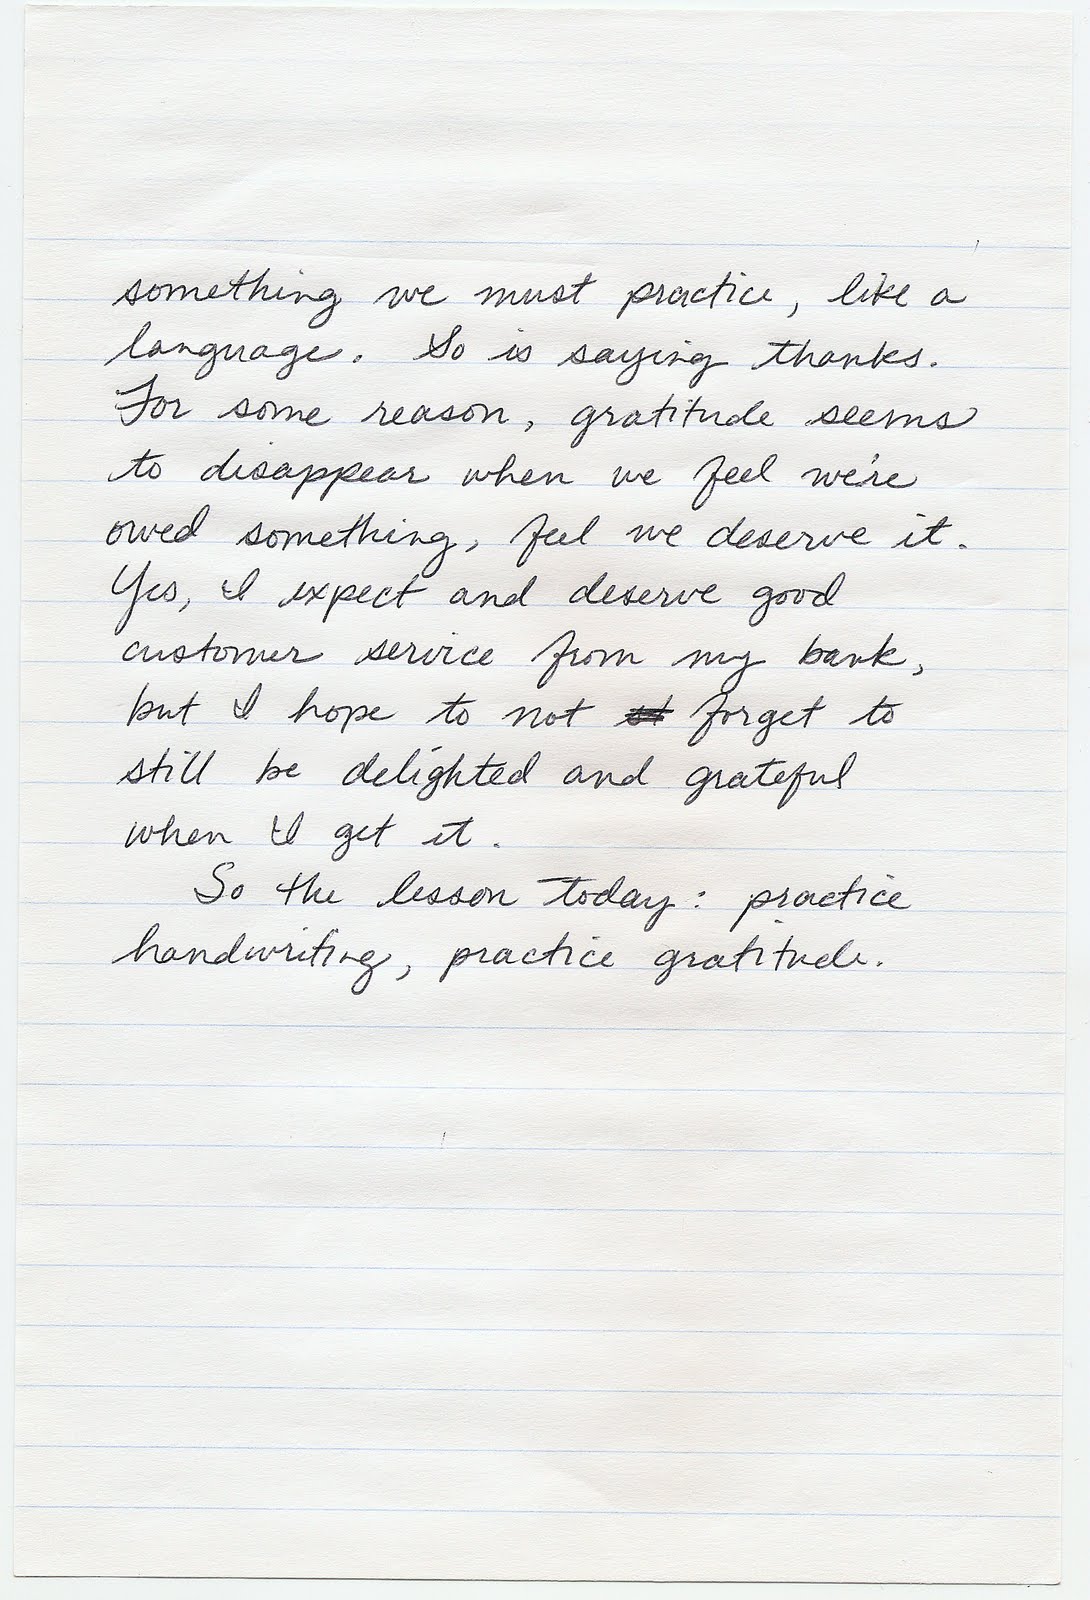 something we must practice, like a
language. So is saying thanks.
For some reason, gratitude seems
to disappear when we feel we're
owed something, feel we deserve it.
Yes, I expect and deserve good
customer service from my bank,
but I hope to not forget to
still be delighted and grateful
when I get it.
So the lesson today: practice
handwriting, practice gratitude.